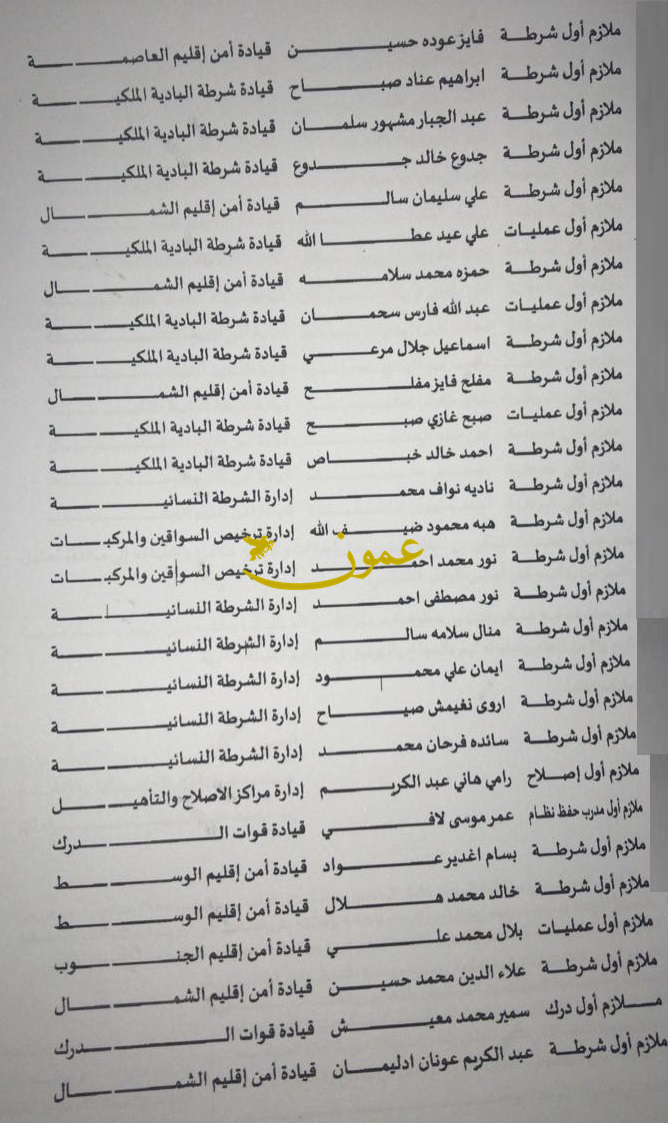 ملازم أول شرطة فايز عوده حسين قيادة أمن إقليم العاصمة
ملازم أول شرطة ابراهيم عناد صباح قيادة شرطة البادية الملكية
ملازم أول شرطة عبد الجبار مشهور سلمان قيادة شرطة البادية الملكية
ملازم أول شرطة جدوع خالد جدوع قيادة شرطة البادية الملكية
ملازم أول شرطة علي سليمان سالم قيادة أمن إقليم الشمال
ملازم أول عمليات علي عيد عطا الله قيادة شرطة البادية الملكية
ملازم أول شرطة حمزه محمد سلامه قيادة أمن إقليم الشمال
ملازم أول عمليات عبد الله فارس سحمان قيادة شرطة البادية الملكية
ملازم أول شرطة اسماعيل جلال مرعي قيادة شرطة البادية الملكية
ملازم أول شرطة مفلح فايز مفلح قيادة أمن إقليم الشمال
ملازم أول عمليات صبح غازي صبح قيادة شرطة البادية الملكية
ملازم أول شرطة احمد خالد خباص قيادة شرطة البادية الملكية
ملازم أول شرطة ناديه نواف محمد إدارة الشرطة النسائية
ملازم أول شرطة هبه محمود ضيف الله إدارة ترخيص السواقين والمركبات
عمون
ملازم أول شرطة نور محمد احمد إدارة ترخيص السواقين والمركبات
ملازم أول شرطة نور مصطفى احمد إدارة الشرطة النسائية
ملازم أول شرطة منال سلامه سالم إدارة الشرطة النسائية
ملازم أول شرطة ايمان علي محمود إدارة الشرطة النسائية
ملازم أول شرطة اروى نغيمش صياح إدارة الشرطة النسائية
ملازم أول شرطة سائده فرحان محمد إدارة الشرطة النسائية
ملازم أول إصلاح رامي هاني عبد الكريم إدارة مراكز الاصلاح والتأهيل
ملازم أول مدرب حفظ نظام عمر موسى لافي قيادة قوات الدرك
ملازم أول شرطة بسام اغدير عواد قيادة أمن إقليم الوسط
ملازم أول شرطة خالد محمد هلال قيادة أمن إقليم الوسط
ملازم أول عمليات بلال محمد علي قيادة أمن إقليم الجنوب
ملازم أول شرطة علاء الدين محمد حسين قيادة أمن إقليم الشمال
ملازم أول درك سمير محمد معيش قيادة قوات الدرك
ملازم أول شرطة عبد الكريم عونان ادليمان قيادة أمن إقليم الشمال